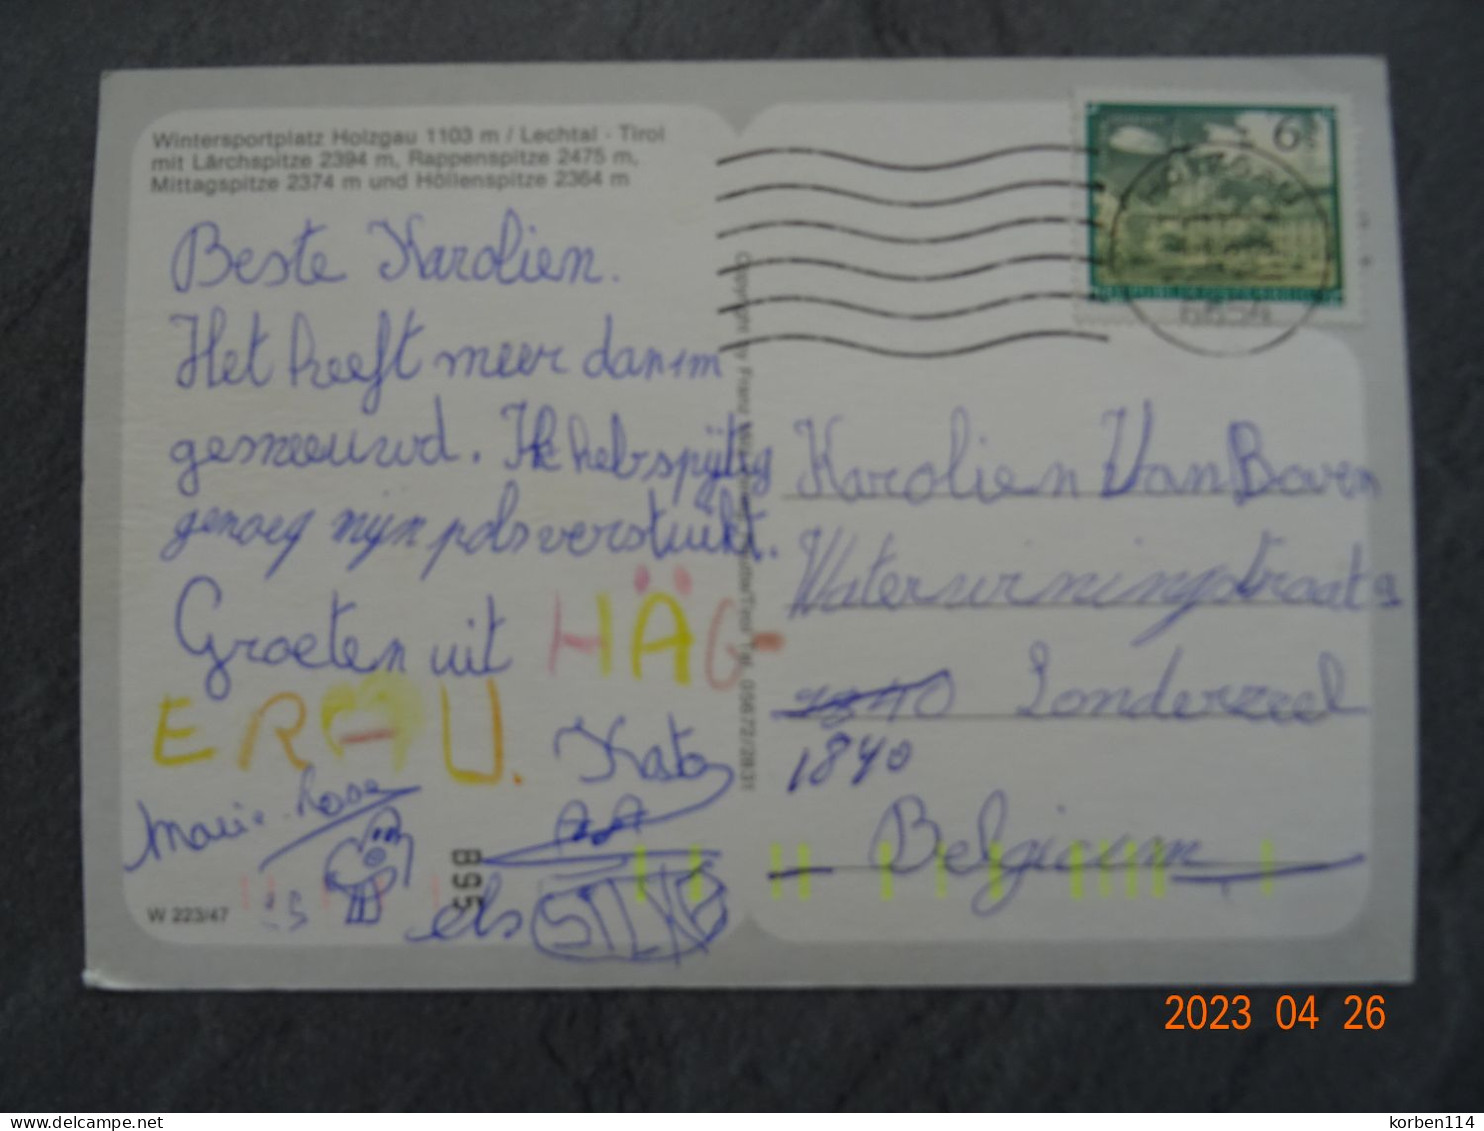 Wintersportplatz Holzgau 1103 m / Lechtal - Tirol
mit Lärchspitze 2394 m, Rappenspitze 2475 m,
Mittagspitze 2374 m und Höllenspitze 2364 m
6
HOLZGAU
6654
Beste Karolien.
Het heeft meer dan 1m
gesneeuwd. Ik heb spijtig
genoeg mijn pols verstuikt.
Groeten uit HÄG-
ERAU.
Kato
Marie-Rose
els
SILKE
B95
W 223/47
Copyright by Franz
Tel. 05672/2831
Karolien Van Boven
Londerzeel
1840
Belgicum
2023 04 26
korben114